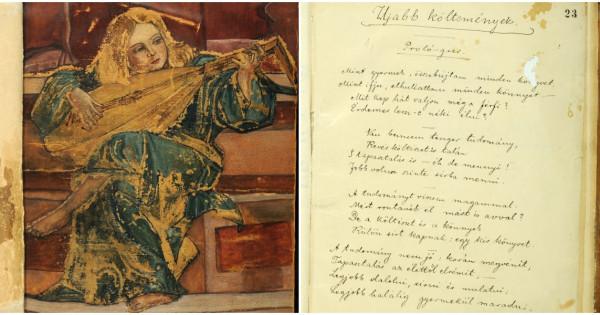 Ujabb költemények.
23
Mint gyermek, összebujtam minden könyvet,
Mint ifju, elhullattam minden könnyet –
Mit kap hát valjon még a férfi?
Érdemes lesz-e néki élni?
Van bennem tenger tudomány,
Kevés költészet is talán
S tapasztalás is – óh de mennyi!
Jobb volna szinte sirba menni.
A tudományt viszem magammal:
Mért rontanék el mást is avval?
De a költészet és a könnyek
Külön sirt kapnak: egy kis könyvet.
A tudomány nem jó: korán megvénit,
Tapasztalás az élettől elrémit –
Legjobb dalolni, sirni és mulatni,
Legjobb halálig gyermekül maradni.